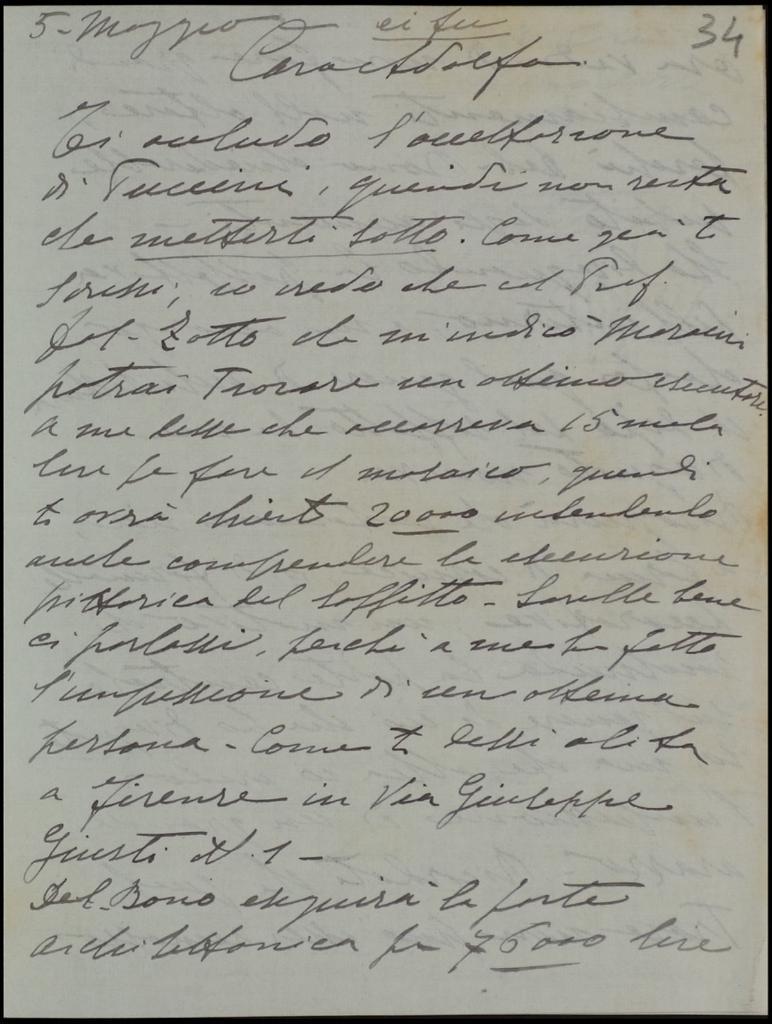 5 - Maggio ei fu 34
Caro Adolfo.
Ti accludo l'accettazione
di Puccini, quindi non resta
che metterti sotto. Come già ti
scrissi, io credo che col Prof.
Dal-Zotto che m'indicò Moraini
potrai trovare un ottimo esecutore.
a me disse che occorreva 15 mila
lire pe fare il mosaico, quindi
ti avrà chiesto 20000 intendendo
anche comprendere la esecuzione
pittorica del soffitto - Sarebbe bene
ci parlassi, perchè a me ha fatto
l'impressione di un ottima
persona - Come ti dissi abita
a Firenze in Via Giuseppe
Giusti N. 1 -
Del-Bono eseguirà la parte
architettonica per 76000 lire